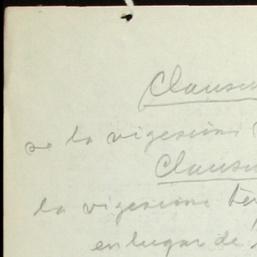 Clausu
de la vigesimi
Clausu
la vigesimi ter
en lugar de